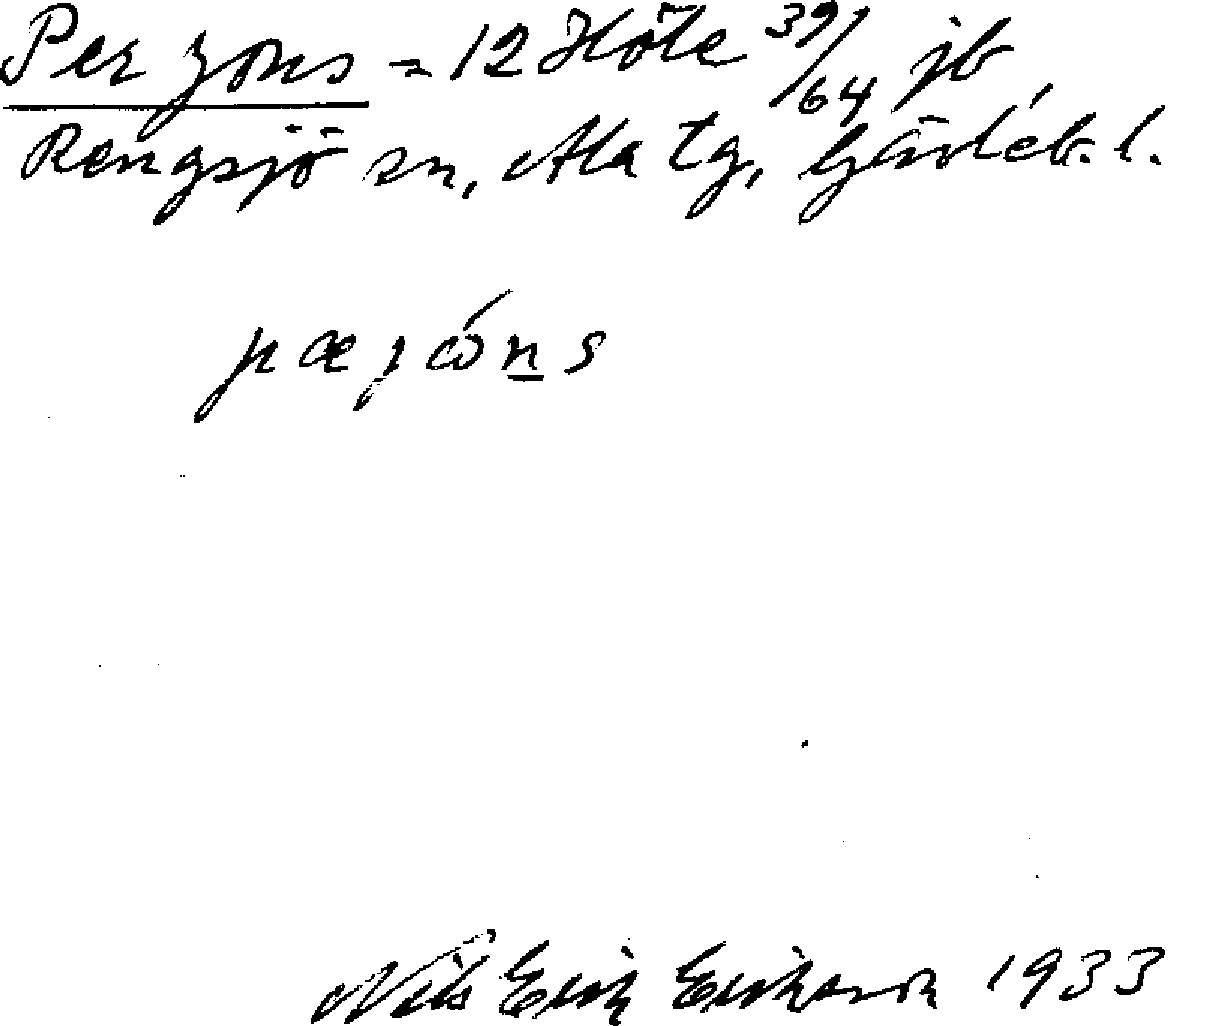 Per Jons = 12 Höle 39/64 jb
Rengsjö sn, Ala tg, Gävleb. l.
pæjóns
Nils Erik Erikson 1933